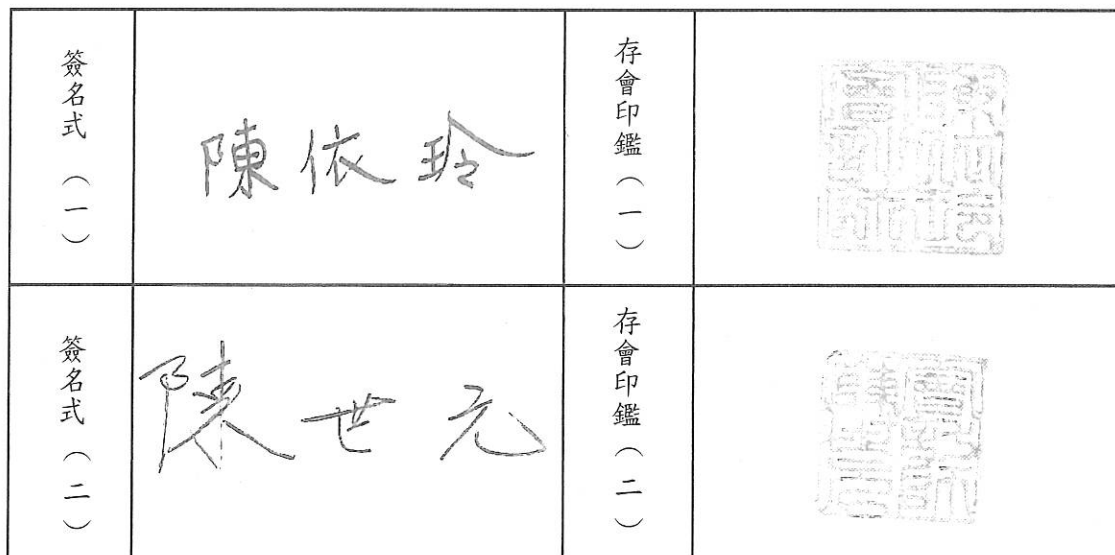 簽名式（一）
陳依玲
存會印鑑（一）
簽名式（二）
陳世元
存會印鑑（二）